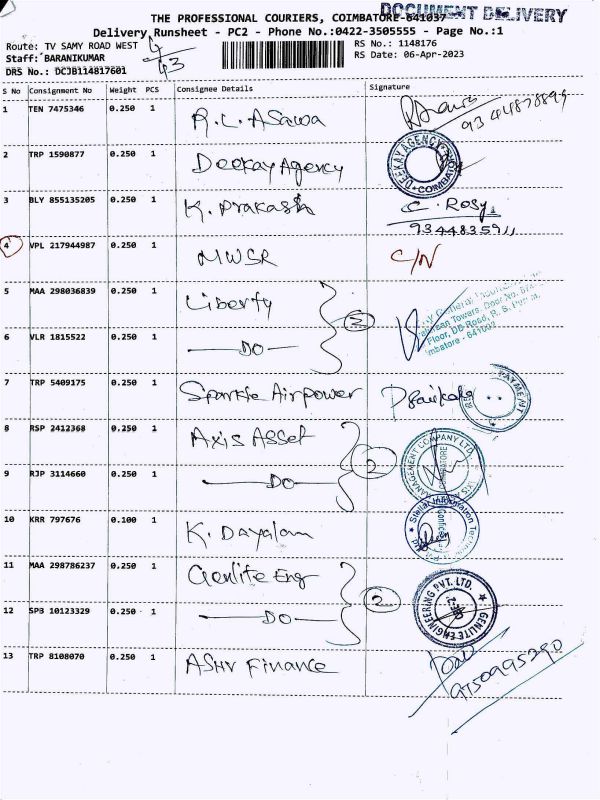 DOCUMENT DELIVERY
THE PROFESSIONAL COURIERS, COIMBATORE-641037
Delivery Runsheet - PC2 - Phone No.:0422-3505555 - Page No.:1
Route: TV SAMY ROAD WEST
Staff: BARANIKUMAR
DRS No.: DCJB114817601
4/43
RS No.: 1148176
RS Date: 06-Apr-2023
S No Consignment No Weight PCS Consignee Details Signature
1 TEN 7475346 0.250 1 R.L. Asawa
2 TRP 1590877 0.250 1 Deekay Agency DEEKAY AGENCY COIMBATORE
3 BLY 855135205 0.250 1 K. Prakash C. Rosy
9344835911
4 VPL 217944987 0.250 1 MWSR C/N
5 MAA 298036839 0.250 1 Liberty 2
Floor, DB Road, R. S. Puram,
6 VLR 1815522 0.250 1 DO
7 TRP 5409175 0.250 1 Sparkle Airpower
8 RSP 2412368 0.250 1 Axis Asset 2 MANAGEMENT COMPANY LTD.
9 RJP 3114660 0.250 1 DO
10 KRR 797676 0.100 1 K. Dayalan
11 MAA 298786237 0.250 1 Genlite Eng 2 GENLITE ENGINEERING PVT. LTD.
12 SPB 10123329 0.250 1 DO
13 TRP 8108070 0.250 1 Ashv Finance
9750995390